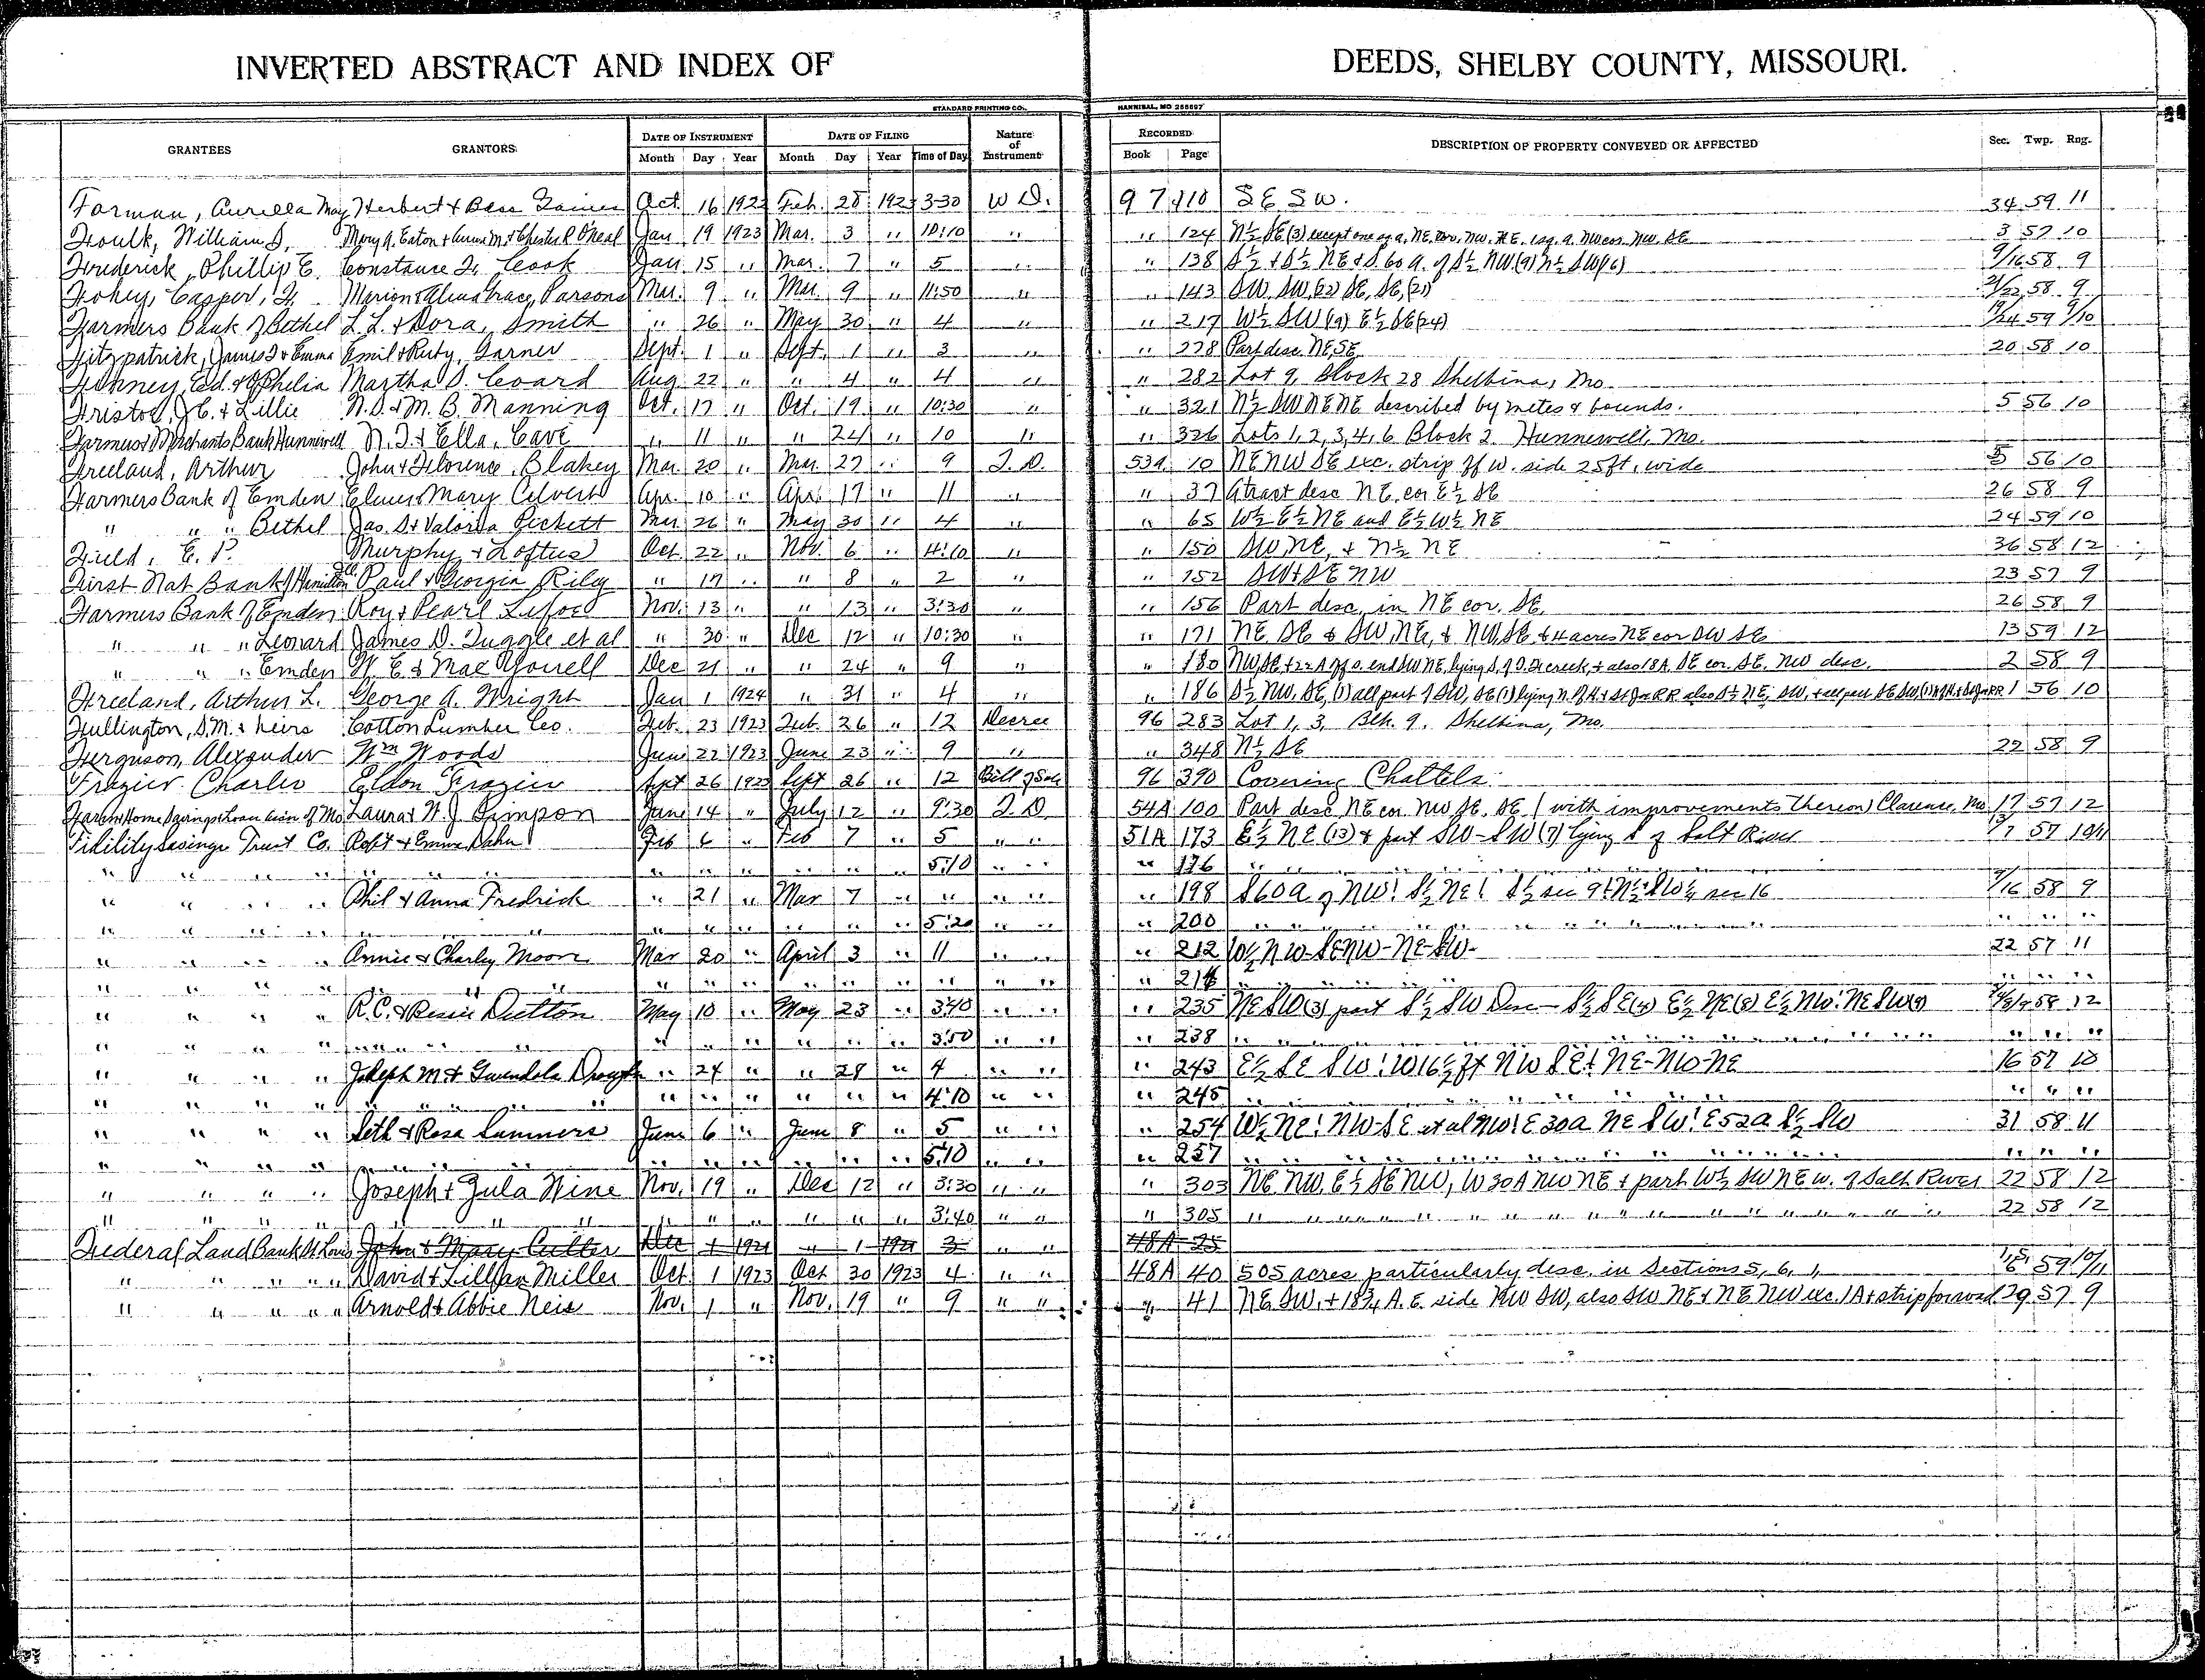 INVERTED ABSTRACT AND INDEX OF DEEDS, SHELBY COUNTY, MISSOURI.
STANDARD PRINTING CO., HANNIBAL, MO 255697
GRANTEES GRANTORS DATE OF INSTRUMENT Month Day Year DATE OF FILING Month Day Year Time of Day Nature of Instrument RECORDED Book Page DESCRIPTION OF PROPERTY CONVEYED OR AFFECTED Sec. Twp. Rng.
Forman, Aurella May Herbert & Bess Gaines Oct. 16 1922 Feb. 28 1923 3-30 W D. 97 110 S E S W. 34 59 11
Foulk, William S. Mary A. Eaton & Anna M. & Chester R O'Neal Jan 19 1923 Mar. 3 " 10:10 " " 124 N½ SE (3) except one sq. a. NE. cor. NW. SE. 1 sq. a. NW cor. NW. SE 3 57 10
Frederick, Phillip E. Constance F. Cook Jan. 15 " Mar. 7 " 5 " " 138 S½ + S½ NE + S. 60 a. of S½ NW. (9) N½ SW (16) 9/16 58 9
Fohey, Casper, F. Marion & Alma Grace, Parsons Mar. 9 " Mar. 9 " 11:50 " " 143 SW. SW. (22) SE, SE, (21) 21/22 58 9
Farmers Bank of Bethel L. L. & Dora, Smith " 26 " May 30 " 4 " " 217 W½ SW (19) E½ SE (24) 19/24 59 9/10
Fitzpatrick, James F & Emma Emil & Ruby, Garner Sept. 1 " Sept. 1 " 3 " " 278 Part desc. NE, SE 20 58 10
Fohnney, Ed. & Ophelia Martha S. Coard Aug. 22 " " 4 " 4 " " 282 Lot 9, Block 28 Shelbina, Mo.
Fristoe, J. C. & Lillie N. S. & M. B. Manning Oct. 17 " Oct. 19 " 10:30 " " 321 N½ SW NE NE described by metes & bounds. 5 56 10
Farmers & Merchants Bank Hunnewell N. T. & Ella, Cave " 11 " " 24 " 10 " " 326 Lots 1, 2, 3, 4, 6 Block 2. Hunnewell, Mo.
Freeland, Arthur John & Florence, Blakey Mar. 20 " Mar. 27 " 9 T. D. 53A 10 NE NW SE exc. strip off W. side 25 ft. wide 5 56 10
Farmers Bank of Emden Elmer & Mary Calvert Apr. 10 " Apr. 17 " 11 " " 37 A tract desc NE. cor E½ SE 26 58 9
" " " Bethel Jas. S. & Valoria Pickett Mar. 26 " May 30 " 4 " " 65 W½ E½ NE and E½ W½ NE 24 59 10
Field, E. P. Murphy & Loftus Oct. 22 " Nov. 6 " 4:10 " " 150 SW NE, & N½ NE 36 58 12
First Nat Bank of Hamilton Ill Paul & Georgia Riley " 17 " " 8 " 2 " " 152 SW & SE NW 23 57 9
Farmers Bank of Emden Roy & Pearl Nov. 13 " " 13 " 3:30 " " 156 Part desc. in NE cor. SE. 26 58 9
" " " Leonard James D. Tuggle et al " 30 " Dec 12 " 10:30 " " 171 NE SE & SW, NE, & NW SE & 4 acres NE cor SW SE 13 59 12
" " " Emden W. E. & Mae Yowell Dec 21 " " 24 " 9 " " 180 NW, SE, + 22 A off S. end SW NE, lying S. of creek, & also 18 A. SE cor. SE. NW desc. 2 58 9
Freeland, Arthur L. George A. Wright Jan 1 1924 " 31 " 4 " " 186 S½ NW, SE, (1) all part of SW, SE (1) lying N. of H. & St Jo RR also S½ NE, SW, & all part SE SW (1) N of H. & St Jo RR 1 56 10
Fullington, S. M. & heirs Cotton Lumber Co. Feb. 23 1923 Feb. 26 " 12 Decree 96 283 Lot 1, 3, Blk. 9. Shelbina, Mo.
Ferguson, Alexander Wm Woods June 22 1923 June 23 " 9 " " 348 N½ SE 22 58 9
Frazier Charles Eldon Frazier Sept 26 1923 Sept 26 " 12 Bill of Sale 96 390 Covering Chattels.
Farm & Home Savings & Loan Assn of Mo Laura & W. J. Simpson June 14 " July 12 " 9:30 T. D. 54A 100 Part desc NE cor. NW SE, SE (with improvements thereon) Clarence, Mo 17 57 12
Fidility Savings Trust Co. Robt & Emma Dahn Feb 6 " Feb 7 " 5 " " 51A 173 E½ NE (13) & part SW-SW (7) lying S of Salt River 13/7 57 10/11
" " " " " " " " " " " " 5:10 " " " 176 " "
" " " " Phil & Anna Fredrick " 21 " Mar 7 " " " " " 198 S 60 a of NW! S½ NE! S½ sec 9 & N½ SW¼ sec 16 9/16 58 9
" " " " " " " " " " " " 5:20 " " " 200 " " " " "
" " " " Annie & Charley Moore Mar 20 " April 3 " 11 " " " 212 W½ NW-SE NW-NE-SW- 22 57 11
" " " " " " " " " " " " " " " " 214 " " " " "
" " " " R. C. & Bessie Dutton May 10 " May 23 " 3:40 " " " 235 NE SW (3) part S½ SW Desc- S½ SE (4) E½ NE (8) E½ NW! NE SW (9) 58 12
" " " " " " " " " " " " 3:50 " " " 238 " " " " "
" " " " Joseph M. & Gwendola " 24 " " 28 " 4 " " " 243 E½ SE SW! W 16½ ft NW SE! NE-NW-NE 16 57 10
" " " " " " " " " " " " 4:10 " " " 245 " " " " "
" " " " Seth & Rosa Summers June 6 " June 8 " 5 " " " 254 W½ NE! NW-SE et al NW! E 30 a NE SW! E 52 a S½ SW 31 58 11
" " " " " " " " " " " " 5:10 " " " 257 " " " " "
" " " " Joseph & Zula Wine Nov. 19 " Dec 12 " 3:30 " " " 303 NE NW, E½ SE NW, W 30 A NW NE & part W½ SW NE W. of Salt River 22 58 12
" " " " " " " " " " " " 3:40 " " " 305 " " " " " 22 58 12
Federal Land Bank St Louis John & Mary Culter Dec 1 1921 " 1 1921 3 " " 48A 25
" " " " " David & Lillian Miller Oct. 1 1923 Oct 30 1923 4 " " 48A 40 505 acres particularly desc. in Sections 5, 6, 1, 1/5/6 59 10/11
" " " " " Arnold & Abbie Neis Nov. 1 " Nov. 19 " 9 " " " 41 NE SW, + 18¾ A. E. side NW SW, also SW NE & NE NW exc. 1 A & strip for road 29 57 9